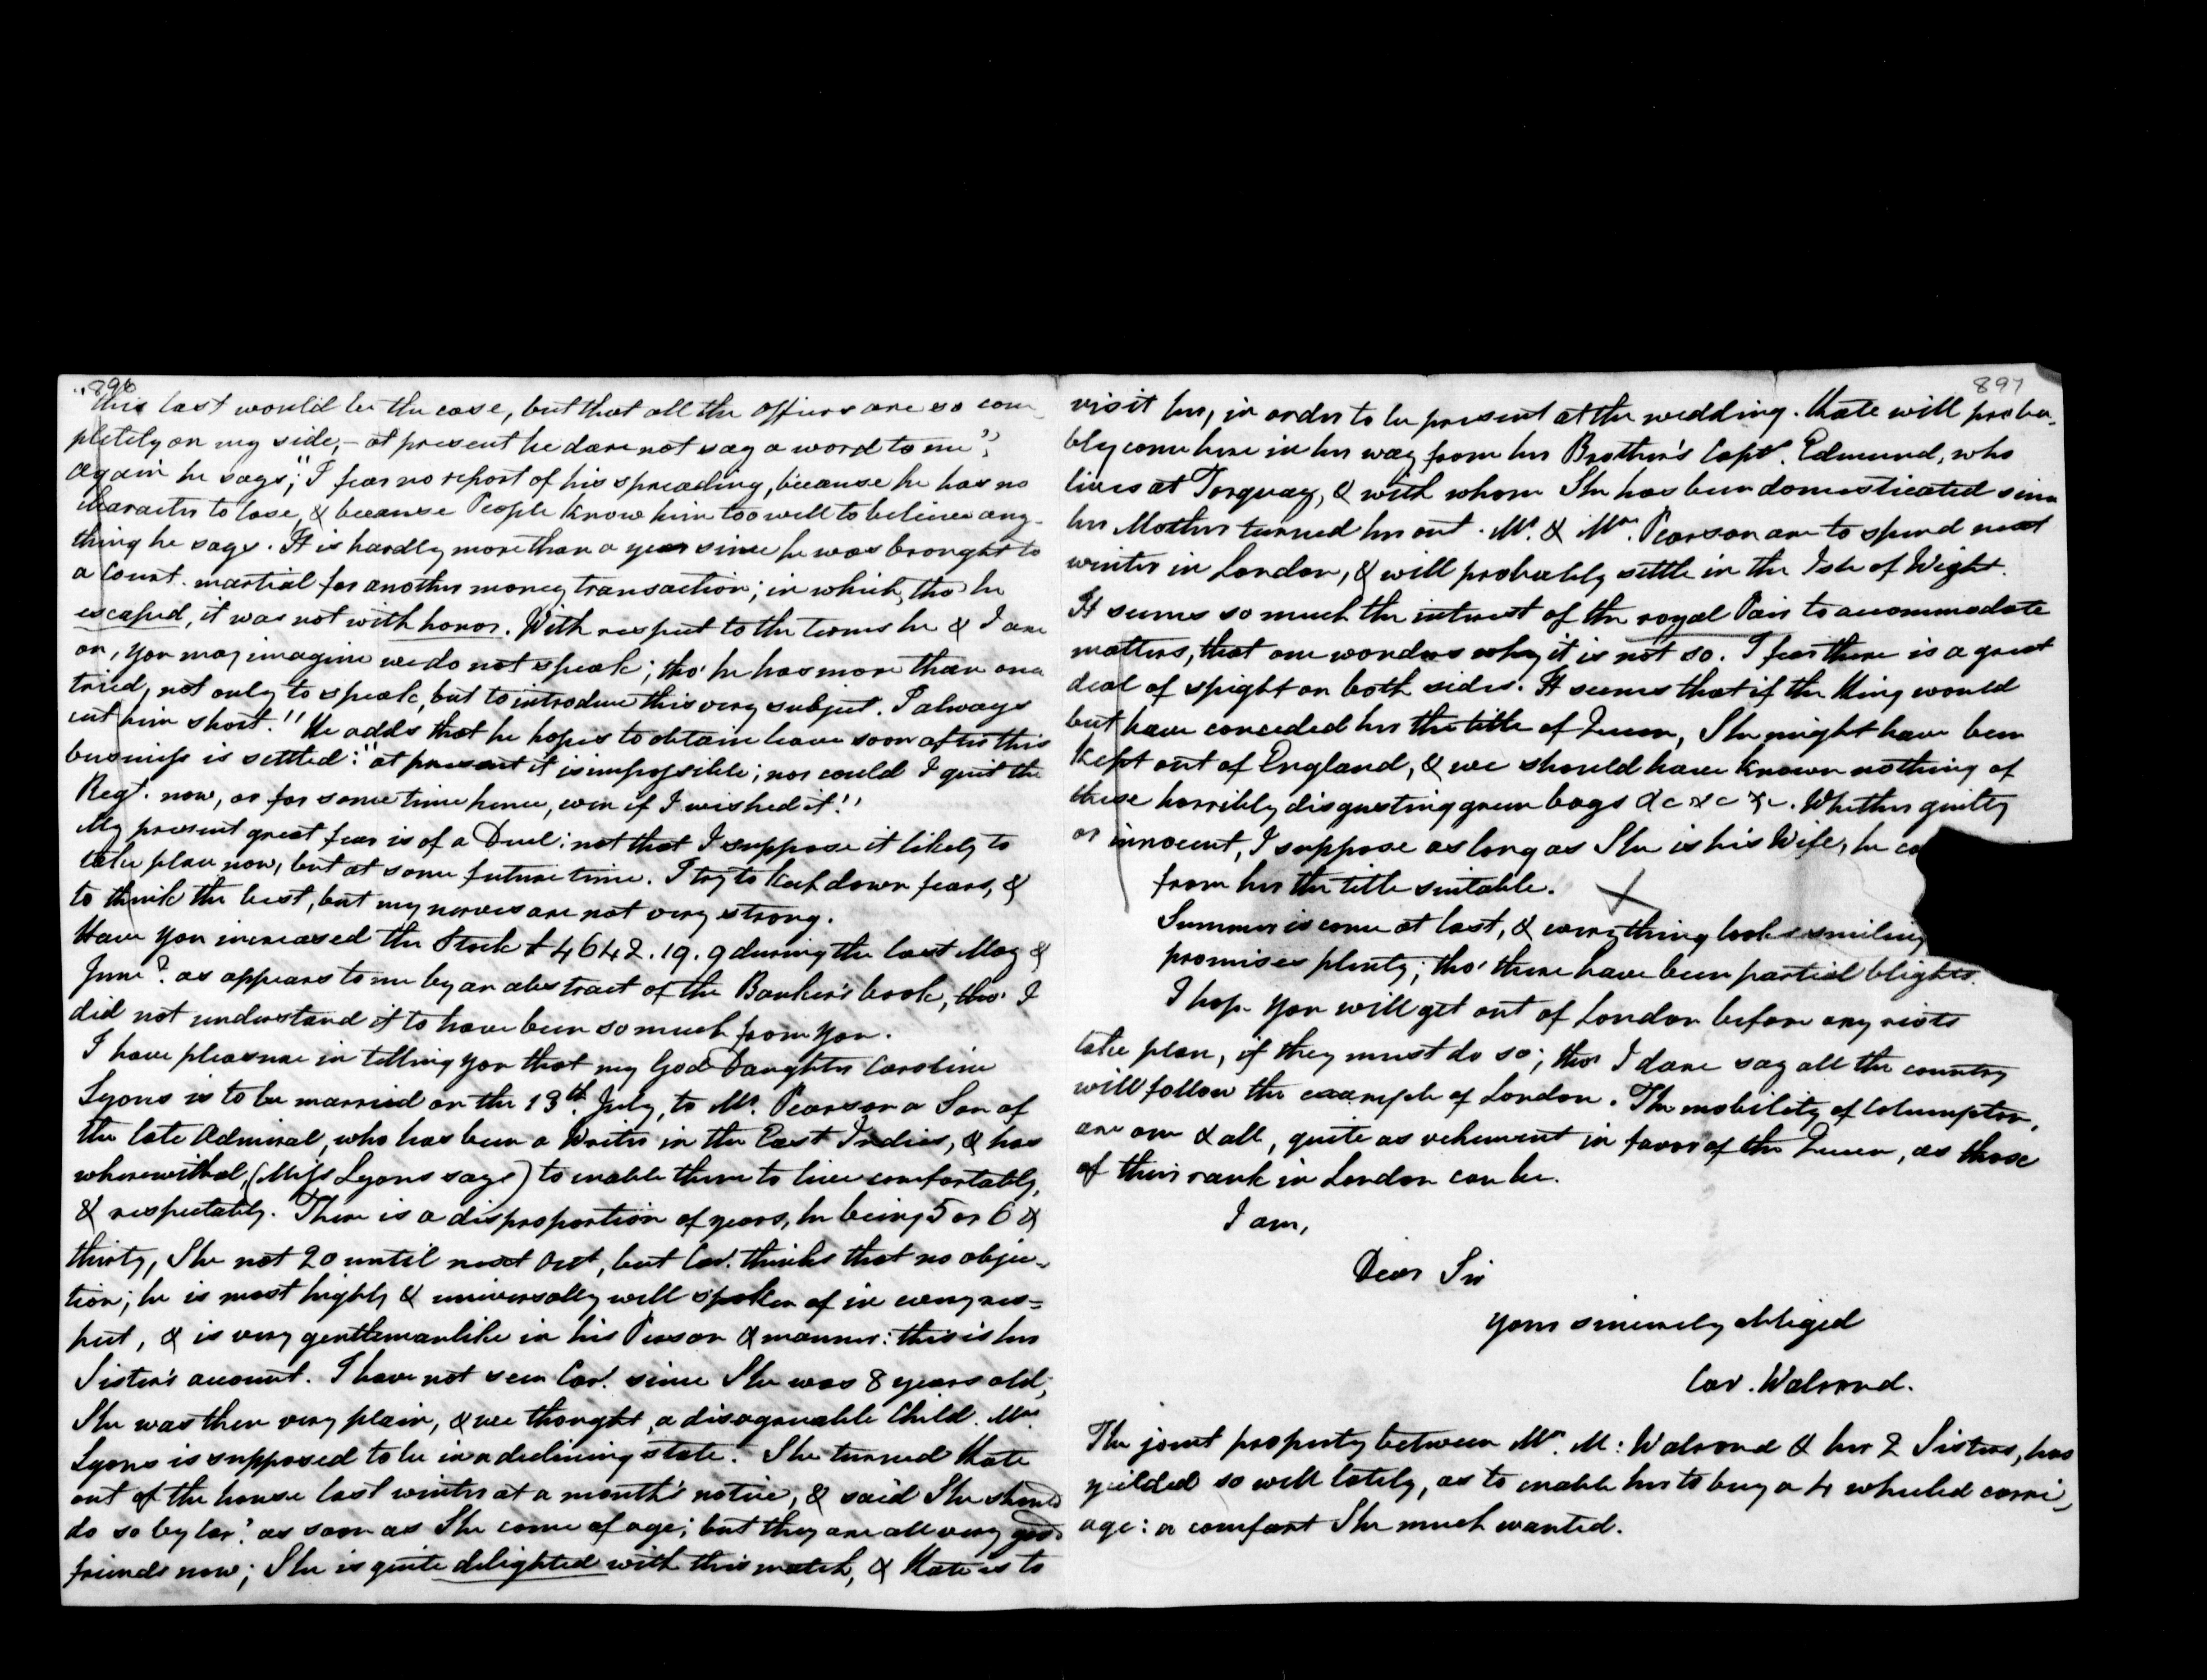 896
"this last would be the case, but that all the officers are so com-
pletely on my side,- at present he dare not say a word to me"
again he says, "I fear no report of his spreading, because he has no
character to lose, & because People know him too well to believe any-
thing he says. It is hardly more than a year since he was brought to
a Court-martial for another money transaction; in which, tho' he
escaped, it was not with honor. With respect to the terms he & I are
on, you may imagine we do not speak; tho' he has more than once
tried, not only to speak, but to introduce this very subject. I always
cut him short." He adds that he hopes to obtain leave soon after this
business is settled: "at present it is impossible; nor could I quit the
Regt. now, or for some time hence, even if I wished it."
My present great fear is of a Duel: not that I suppose it likely to
take place now, but at some future time. I try to keep down fears, &
to think the best, but my nerves are not very strong.
Have you increased the Stock £4642.19.9 during the last May &
June? as appears to me by an abstract of the Banker's book, tho' I
did not understand it to have been so much from you.
I have pleasure in telling you that my God Daughter Caroline
Lyons is to be married on the 13th. July, to Mr. Pearson a Son of
the late Admiral, who has been a Writer in the East Indies, & has
wherewithal, (Miss Lyons says) to enable them to live comfortably,
& respectably. There is a disproportion of years, he being 5 or 6 &
thirty, She not 20 until next Oct, but Car. thinks that no objec-
tion; he is most highly & universally well spoken of in every res=
pect, & is very gentlemanlike in his Person & manner: this is her
Sister's account. I have not seen Car. since She was 8 years old;
She was then very plain, & we thought, a disagreeable Child. Mrs.
Lyons is supposed to be in a declining state. She turned Kate
out of the house last winter at a month's notice, & said She should
do so by Car: as soon as She come of age; but they are all very good
friends now; She is quite delighted with this match, & Kate is to
897
visit her, in order to be present at the wedding. Kate will proba-
bly come here in her way from her Brother's Capt. Edmund, who
lives at Torquay, & with whom She has been domesticated since
her Mother turned her out. Mr. & Mrs. Pearson are to spend next
winter in London, & will probably settle in the Isle of Wight.
It seems so much the interest of the royal Pair to accommodate
matters, that one wonders why it is not so. I fear there is a great
deal of spight on both sides. It seems that if the King would
but have conceded her the title of Queen, She might have been
kept out of England, & we should have known nothing of
these horribly disgusting green bags &c &c &c. Whether guilty
or innocent, I suppose as long as She is his Wife, he
from her the title suitable.
Summer is come at last, & everything looks smiling
promises plenty; tho' there have been partial blights.
I hope you will get out of London before any riots
take place, if they must do so; tho' I dare say all the country
will follow the example of London. The mobility of Columpton,
are one & all, quite as vehement in favor of the Queen, as those
of their rank in London can be.
I am,
Dear Sir
yours sincerely obliged
Car. Walrond.
The joint property between Mrs. M: Walrond & her 2 Sisters, has
yielded so well lately, as to enable her to buy a 4 wheeled carri-
age: a comfort She much wanted.